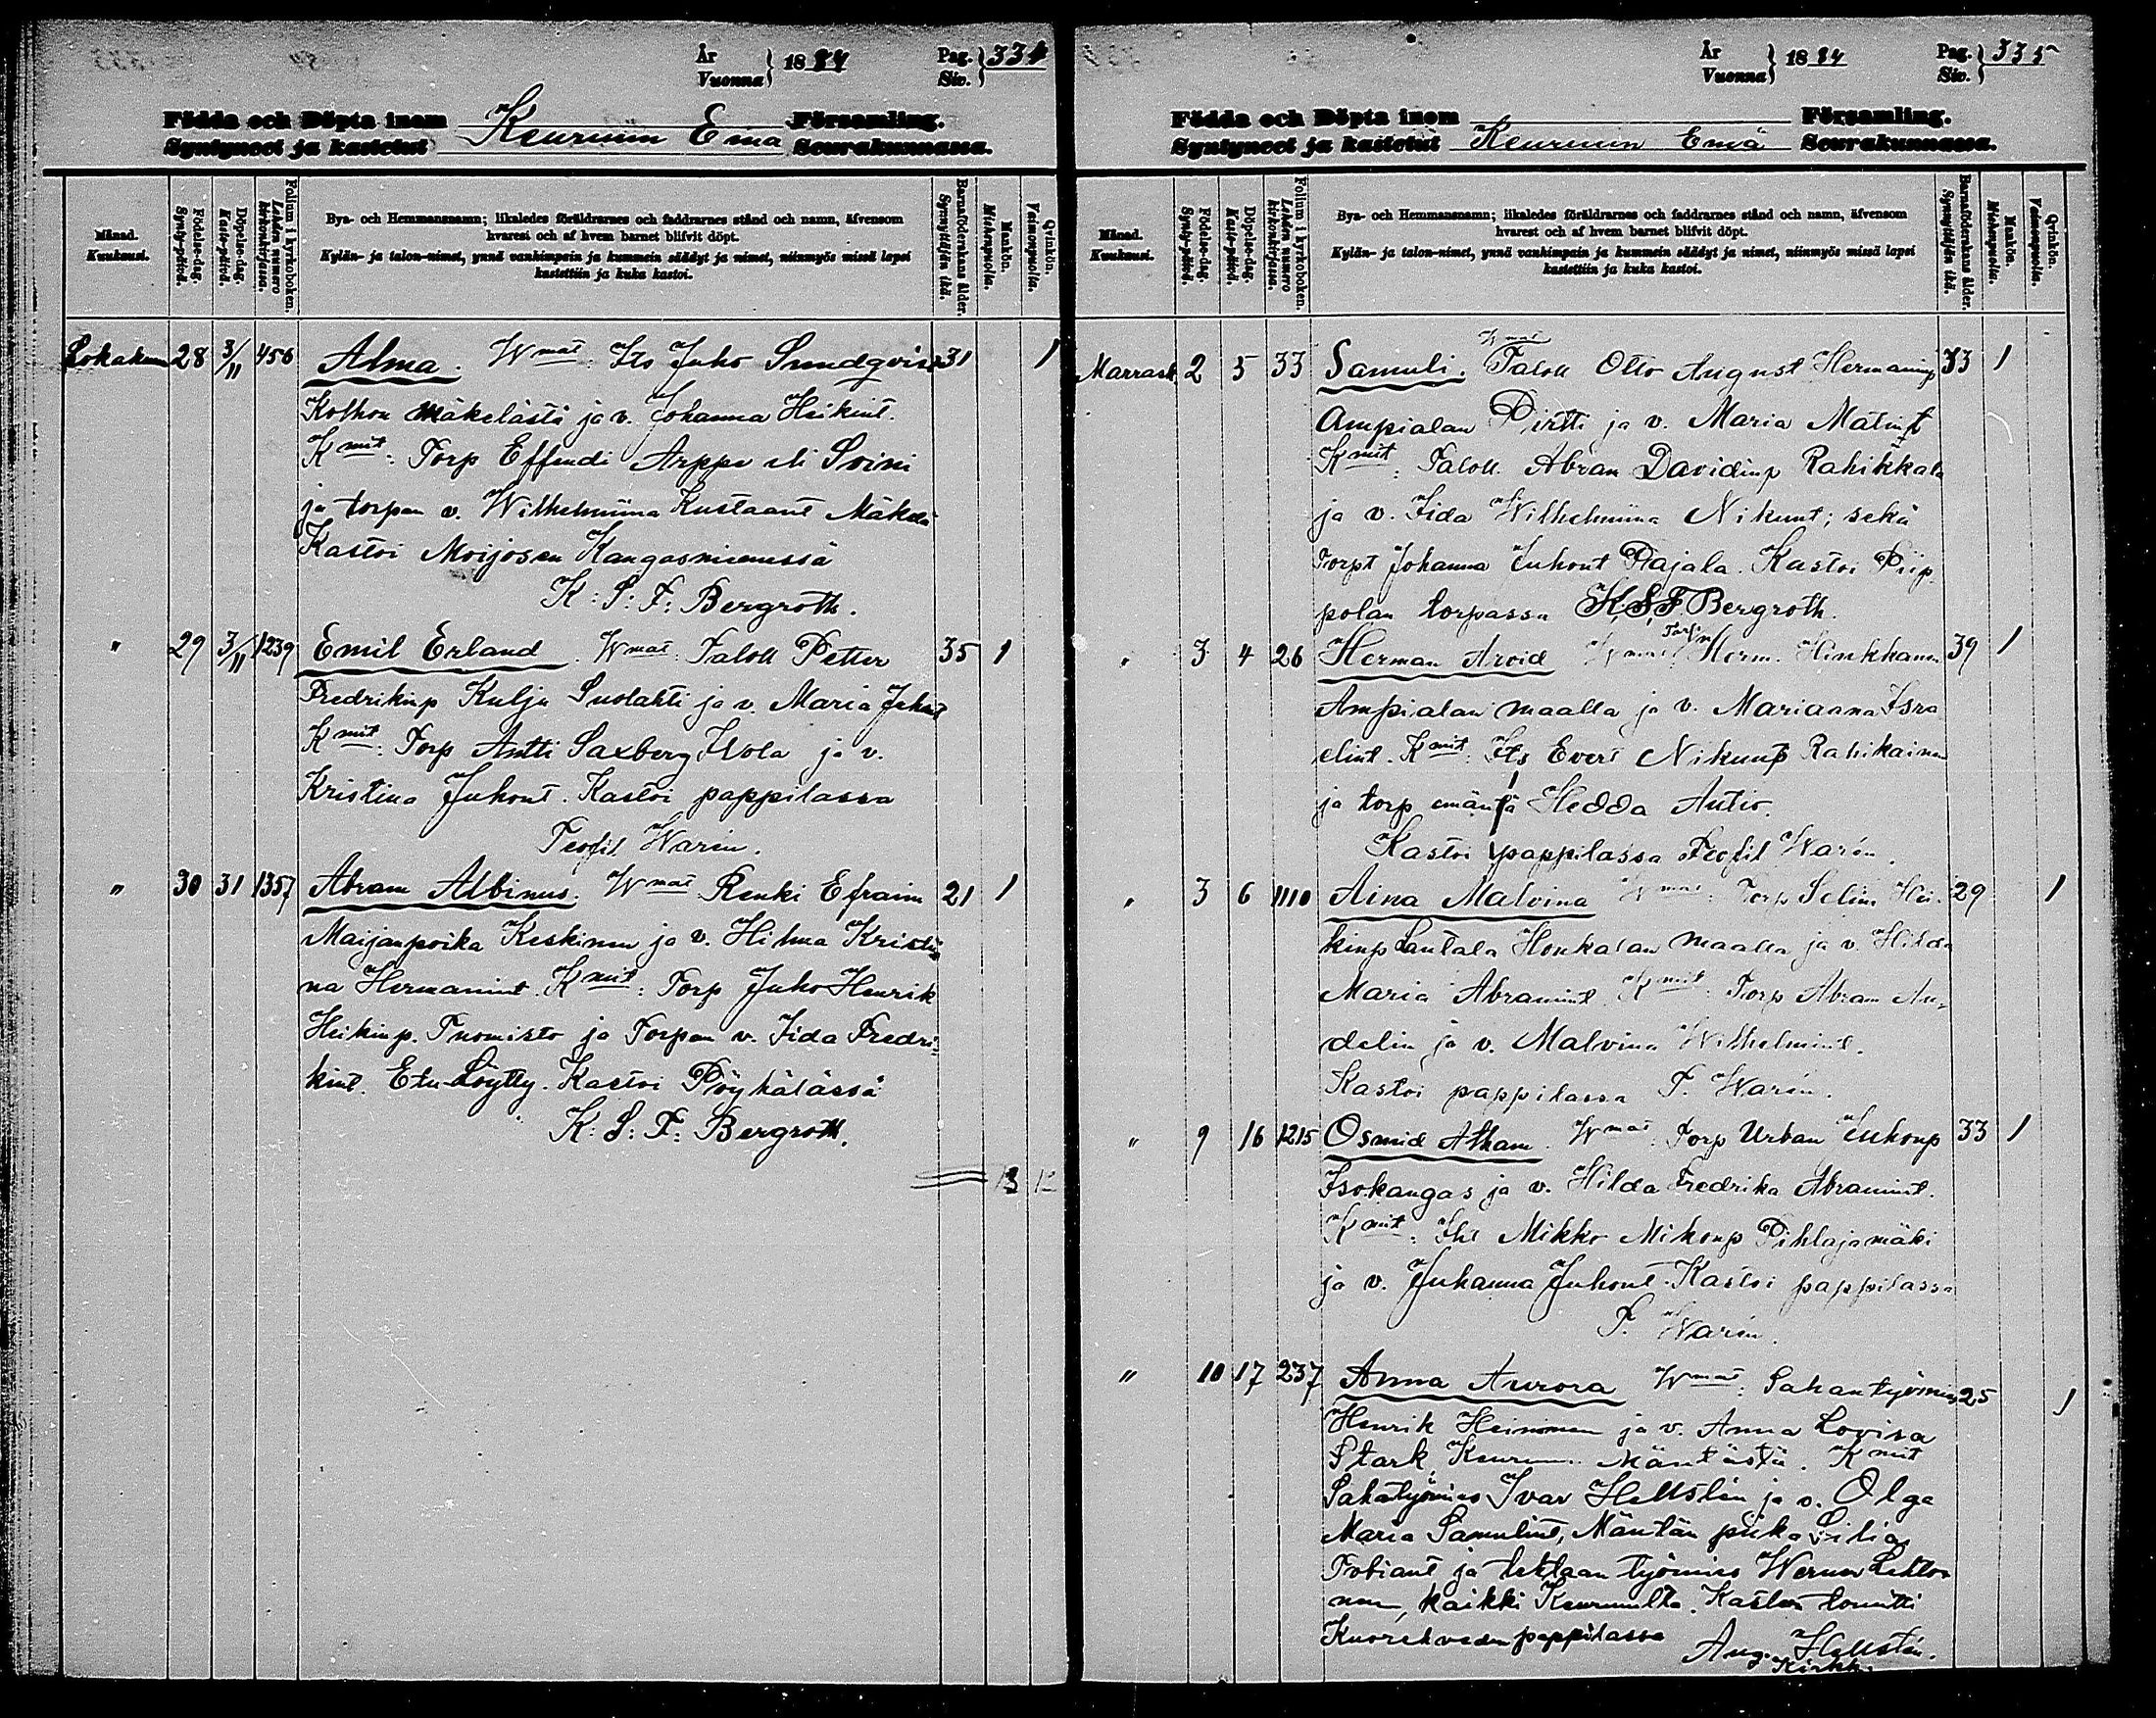 År Vuonna } 1884 Pag. Siv. } 334
Födda och Döpta inom Församling.
Syntyneet ja kastetut Keuruun Emä Seurakunnassa.
Månad. Kuukausi.
Födelse-dag. Synty-päivä.
Döpelse-dag. Kaste-päivä.
Folium i kyrkoboken. Lehden numero kirkonkirjassa.
Bya- och Hemmansnamn; likaledes föräldrarnes och faddrarnes stånd och namn, äfvensom
hvarest och af hvem barnet blifvit döpt.
Kylän- ja talon-nimet, ynnä vanhimpain ja kummein säädyt ja nimet, niinmyös missä lapsi
kastettiin ja kuka kastoi.
Barnaföderskans ålder. Synnyttäjän ikä.
Mankön. Miehenpuolia.
Qvinkön. Vaimonpuolia.
Lokakuun 28 3/11 456 Alma. Wmat: Its Juho Sundqvist 31 1
Kolhon Mäkelästä ja v. Johanna Heikint.
Kmit: Torp Effendi Arppe eli Soini
ja torpan v. Wilhelmiina Kustaant Mäkelä
Kastoi Moijosen Kangasniemessä
K: S: F: Bergroth.
" 29 3/11 1239 Emil Erland. Wmat: Taloll Petter 35 1
Fredrikinp Kulju Suolahti ja v. Maria Juhont
Kmit: Torp Antti Saxberg Wola ja v.
Kristina Juhont. Kastoi pappilassa
Teofil Warén.
" 30 31 1357 Abram Albinus. Wmat Renki Efraim 21 1
Maijanpoika Keskinen ja v. Hilma Kristii
na Hermanint. Kmit: Torp Juho Henrik
Heikinp. Tuomisto ja Torpan v. Iida Fredri-
kint. Etu-Löytty. Kastoi Pöyhälässä
K: S: F: Bergroth.
13 12
År Vuonna } 1884 Pag. Siv. } 335
Födda och Döpta inom Församling.
Syntyneet ja kastetut Keuruun Emä Seurakunnassa.
Månad. Kuukausi.
Födelse-dag. Synty-päivä.
Döpelse-dag. Kaste-päivä.
Folium i kyrkoboken. Lehden numero kirkonkirjassa.
Bya- och Hemmansnamn; likaledes föräldrarnes och faddrarnes stånd och namn, äfvensom
hvarest och af hvem barnet blifvit döpt.
Kylän- ja talon-nimet, ynnä vanhimpain ja kummein säädyt ja nimet, niinmyös missä lapsi
kastettiin ja kuka kastoi.
Barnaföderskans ålder. Synnyttäjän ikä.
Mankön. Miehenpuolia.
Qvinkön. Vaimonpuolia.
Marrask 2 5 33 Samuli. Wmat Taloll Otto August Hermaninp 33 1
Ampialan Pirtti ja v. Maria Matint
Kmit: Taloll. Abram Davidinp Rahikkala
ja v. Iida Wilhelmiina Nikunt; sekä
Torpt Johanna Juhont Pajala. Kastoi Piip-
polan torpassa K. S. F. Bergroth.
" 3 4 26 Herman Arvid Wmat: Torp Herm. Hinkkanen 39 1
Ampialan maalla ja v. Marianna Isra
elint. Kmit: Its Evert Nikunp Rahikainen
ja torp emäntä Hedda Autio.
Kastoi pappilassa Teofil Warén.
" 3 6 1110 Aina Malvina Wmat: Torp Selim Hei- 29 1
kinp Lautala Honkalan maalla ja v. Hilda
Maria Abramint Kmit Torp Abram An-
delin ja v. Malvina Wilhelmint.
Kastoi pappilassa T. Warén.
" 9 16 1215 Osmid Atham. Wmat: Torp Urban Juhonp 33 1
Isokangas ja v. Hilda Fredrika Abramint.
Kmit: Mikko Mikonp Pihlajamäki
ja v. Juhanna Juhont. Kastoi pappilassa
T. Warén.
" 10 17 237 Anna Aurora Wmat: Sahan työmies 25 1
Henrik Heinonen ja v. Anna Lovisa
Stark, Keuruun Mäntästä. Kmit
Sahatyömies Ivar Hellstén ja v. Olga
Maria Samulint, Mäntän piika Silia
Tobiant ja tehtaan työmies Werner Lehto
nen, kaikki Keuruulta. Kasteen toimitti
Kuoreveden pappilassa Aug. Hellstén.
Kirkk.